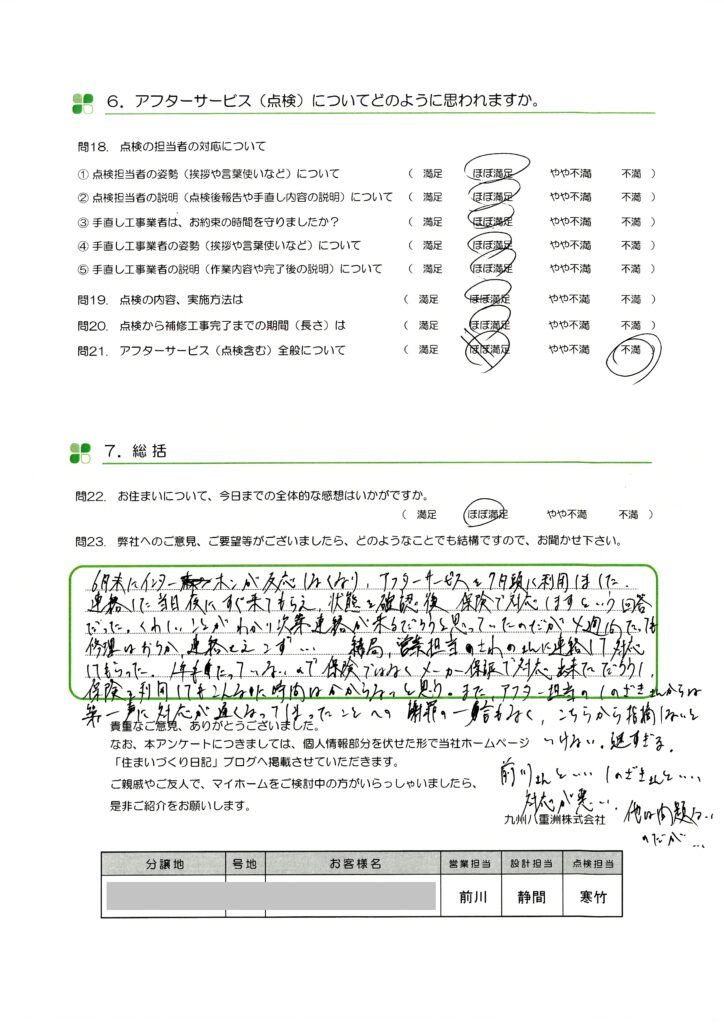 6．アフターサービス（点検）についてどのように思われますか。
問18．点検の担当者の対応について
① 点検担当者の姿勢（挨拶や言葉使いなど）について （ 満足 ほぼ満足 やや不満 不満 ）
② 点検担当者の説明（点検後報告や手直し内容の説明）について （ 満足 ほぼ満足 やや不満 不満 ）
③ 手直し工事業者は、お約束の時間を守りましたか？ （ 満足 ほぼ満足 やや不満 不満 ）
④ 手直し工事業者の姿勢（挨拶や言葉使いなど）について （ 満足 ほぼ満足 やや不満 不満 ）
⑤ 手直し工事業者の説明（作業内容や完了後の説明）について （ 満足 ほぼ満足 やや不満 不満 ）
問19．点検の内容、実施方法は （ 満足 ほぼ満足 やや不満 不満 ）
問20．点検から補修工事完了までの期間（長さ）は （ 満足 ほぼ満足 やや不満 不満 ）
問21．アフターサービス（点検含む）全般について （ 満足 ほぼ満足 やや不満 不満 ）
7．総 括
問22．お住まいについて、今日までの全体的な感想はいかがですか。
（ 満足 ほぼ満足 やや不満 不満 ）
問23．弊社へのご意見、ご要望等がございましたら、どのようなことでも結構ですので、お聞かせ下さい。
6月末にインターホンが反応しなくなり、アフターサービスを7月頭に利用しました。
連絡した当日夜にすぐ来てもらえ、状態を確認後 保険で対応しますという回答
だった。くわしいことがわかり次第連絡が来るだろうと思っていたのだが4週間たっても
修理はおろか、連絡さえこず… 結局、営業担当の さんに連絡して対応
してもらった。1年もたっていないので保険ではなくメーカー保証で対応出来ただろうし、
保険を利用してもこんなに時間はかからないと思う。また、アフター担当の さんからは
第一声に対応が遅くなってしまったことへの謝罪の一言もなく、こちらから指摘しないと
いけない。遅すぎる。
貴重なご意見、ありがとうございました。
なお、本アンケートにつきましては、個人情報部分を伏せた形で当社ホームページ
「住まいづくり日記」ブログへ掲載させていただきます。
ご親戚やご友人で、マイホームをご検討中の方がいらっしゃいましたら、
是非ご紹介をお願いします。
前川さんといい しのざきさんといい
対応が悪い…
他は問題ない
のだが…
九州八重洲株式会社
分譲地 号地 お客様名 営業担当 設計担当 点検担当
前川 静間 寒竹